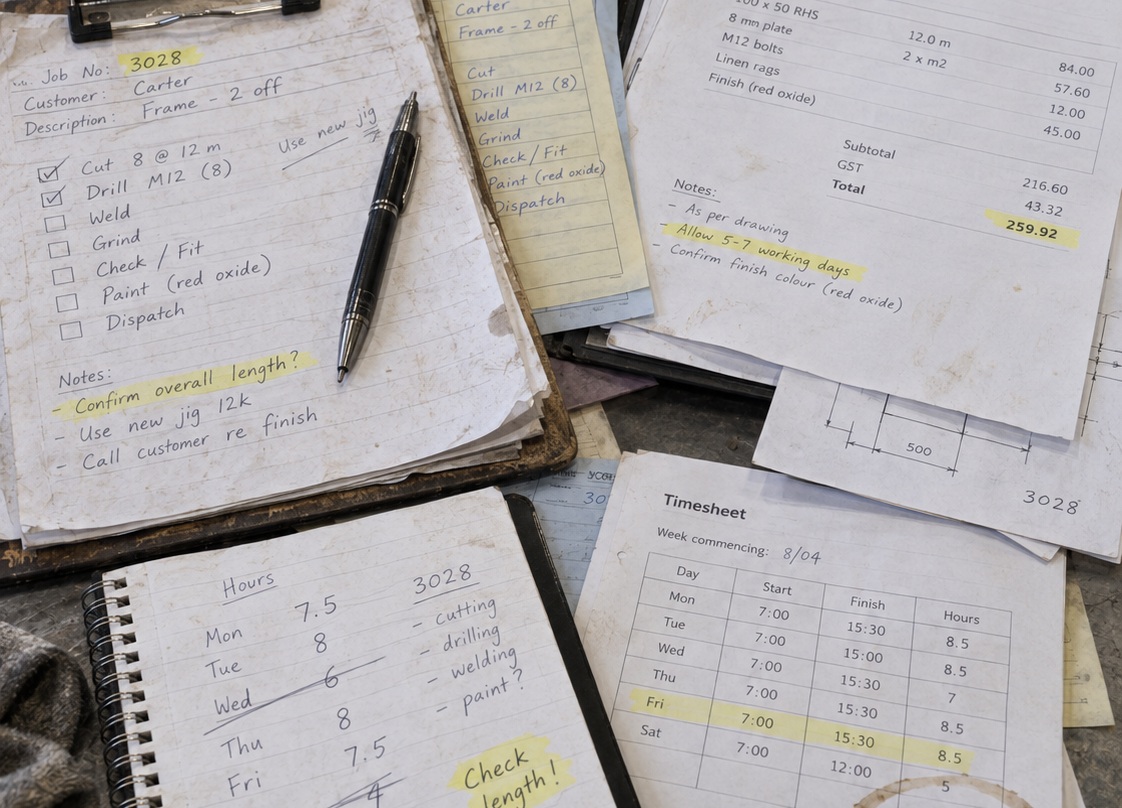 Job No: 3028
Customer: Carter
Description: Frame - 2 off
Use new jig
Cut 8 @ 12 m
Drill M12 (8)
Weld
Grind
Check / Fit
Paint (red oxide)
Dispatch
Notes:
- Confirm overall length?
- Use new jig 12k
- Call customer re finish
Carter
Frame - 2 off
Cut
Drill M12 (8)
Weld
Grind
Check / Fit
Paint (red oxide)
Dispatch
100 x 50 RHS 12.0 m 84.00
8 mm plate 2 x m2 57.60
M12 bolts 12.00
Linen rags 45.00
Finish (red oxide)
Subtotal 216.60
GST 43.32
Total 259.92
Notes:
- As per drawing
- Allow 5-7 working days
- Confirm finish colour (red oxide)
500
3028
30
Hours
Mon 7.5
Tue 8
Wed 6
Thu 8
Fri 7.5
4
3028
- cutting
- drilling
- welding
- paint?
Check
length!
Timesheet
Week commencing: 8/04
Day Start Finish Hours
Mon 7:00 15:30 8.5
Tue 7:00 15:00 8.5
Wed 7:00 15:30 7
Thu 7:00 15:30 8.5
Fri 7:00 15:30 8.5
Sat 7:00 12:00 5